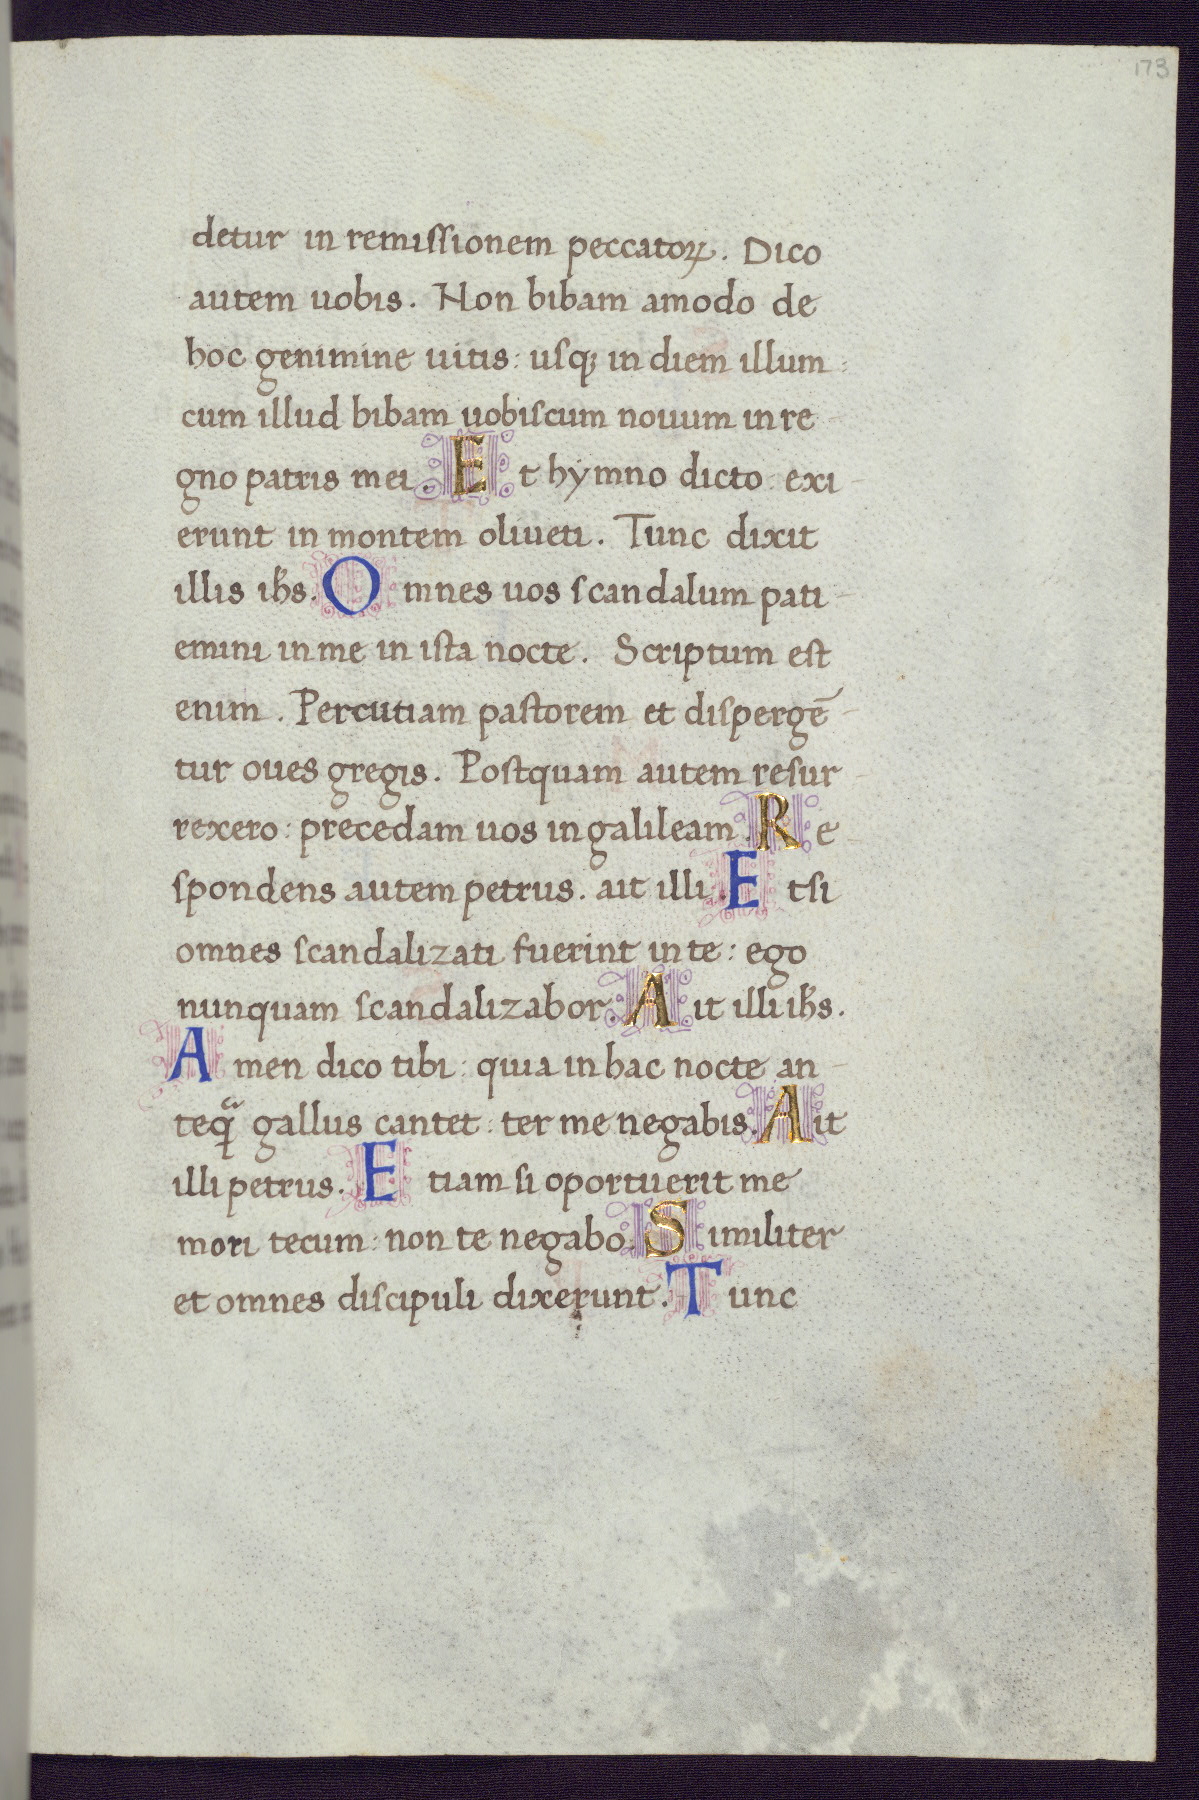 173
detur in remiſſionem peccatoꝝ. Dico
autem uobis. Non bibam amodo de
hoc genimine uitis: uſq; in diem illum
cum illud bibam uobiſcum nouum in re
gno patris mei. Et hymno dicto: exi
erunt in montem oliueti. Tunc dixit
illis ih̅s. Omnes uos ſcandalum pati
emini in me in iſta nocte. Scriptum eſt
enim. Percutiam paſtorem et diſpergē
tur oues gregis. Poſtquam autem reſur
rexero: precedam uos in galileam. Re
ſpondens autem petrus. ait illi. Etſi
omnes ſcandalizati fuerint in te: ego
nunquam ſcandalizabor. Ait illi ih̅s.
Amen dico tibi: quia in hac nocte an
teqᷓ gallus cantet: ter me negabis. Ait
illi petrus. Etiam ſi oportuerit me
mori tecum: non te negabo. Similiter
et omnes diſcipuli dixerunt. Tunc